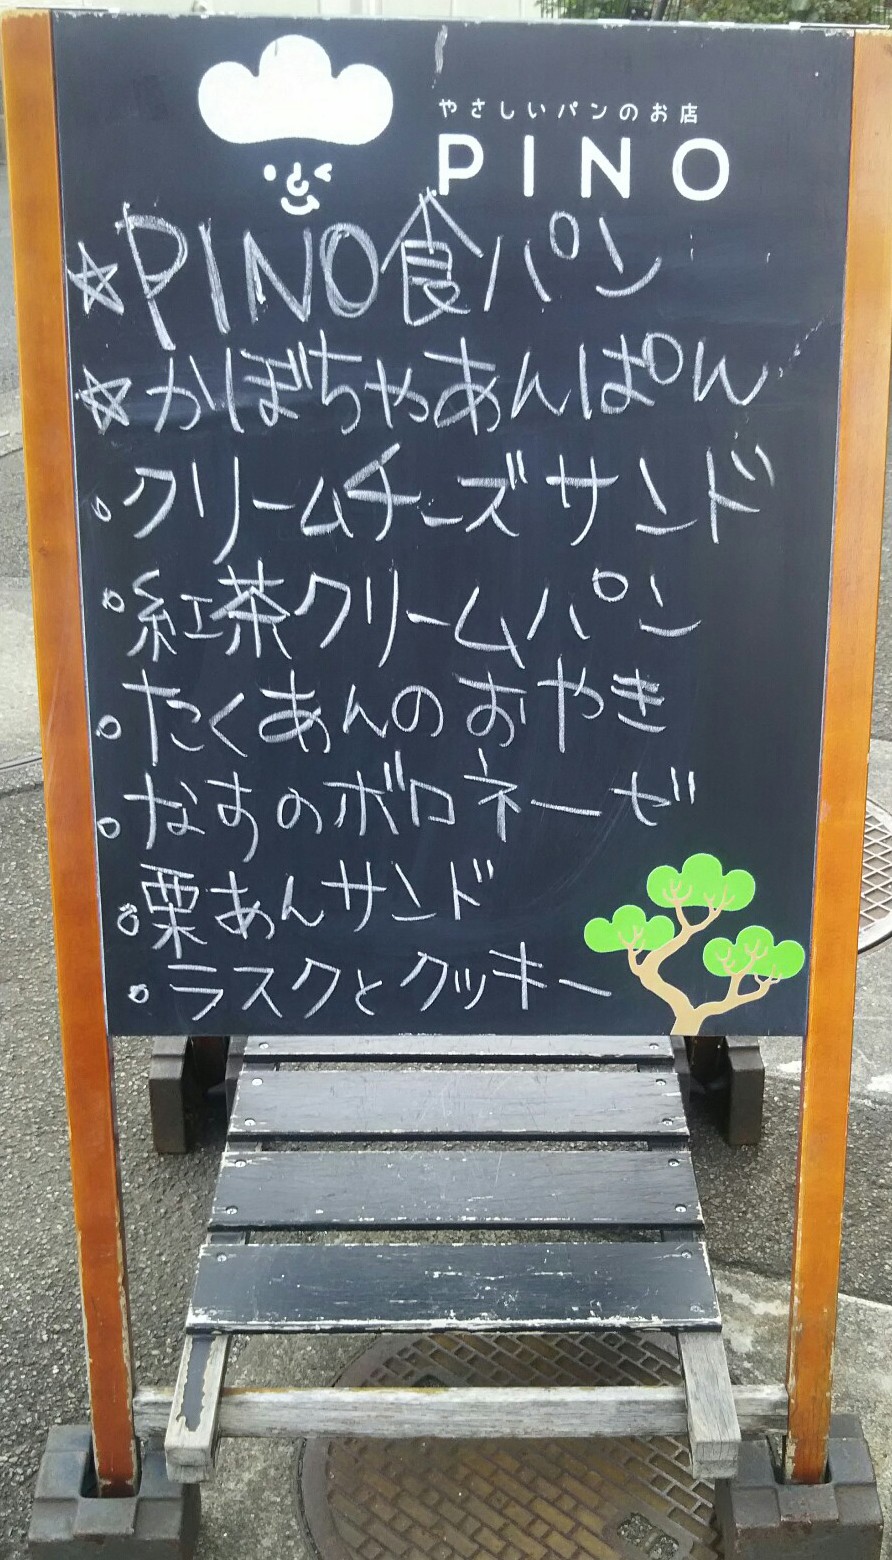 やさしいパンのお店
PINO
☆PINO食パン
☆かぼちゃあんぱん
○クリームチーズサンド
○紅茶クリームパン
○たくあんのおやき
○なすのボロネーゼ
○栗あんサンド
○ラスクとクッキー